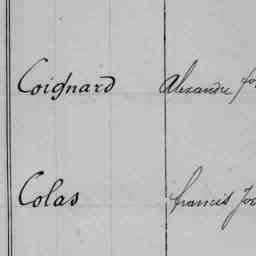 Coignard Alexandre
Colas Francis